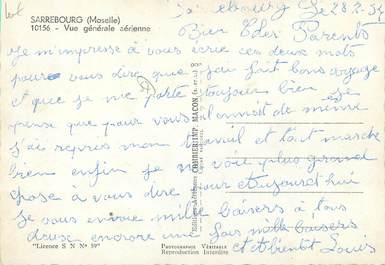 SARREBOURG (Moselle)
10156 - Vue générale aérienne
Sarrebourg le 28.2.54
Bien Cher Parents
Je m'impresse à vous écrire ces deux mots
pour vous dire que j'ai fait bon voyage
et que je me porte toujours bien je
pense que pour vous l'ensoit de même
j'ai repris mon travail et tout marche
bien enfin je ne voie plus grand
chose à vous dire pour aujourd'hui
je vous envoie mille baisers à tous
deux encrore une fois mille baisers
et A bientôt Louis
COMBIER IMP. MACON
"Licence S N N° 59"
PHOTOGRAPHIE VÉRITABLE
Reproduction Interdite